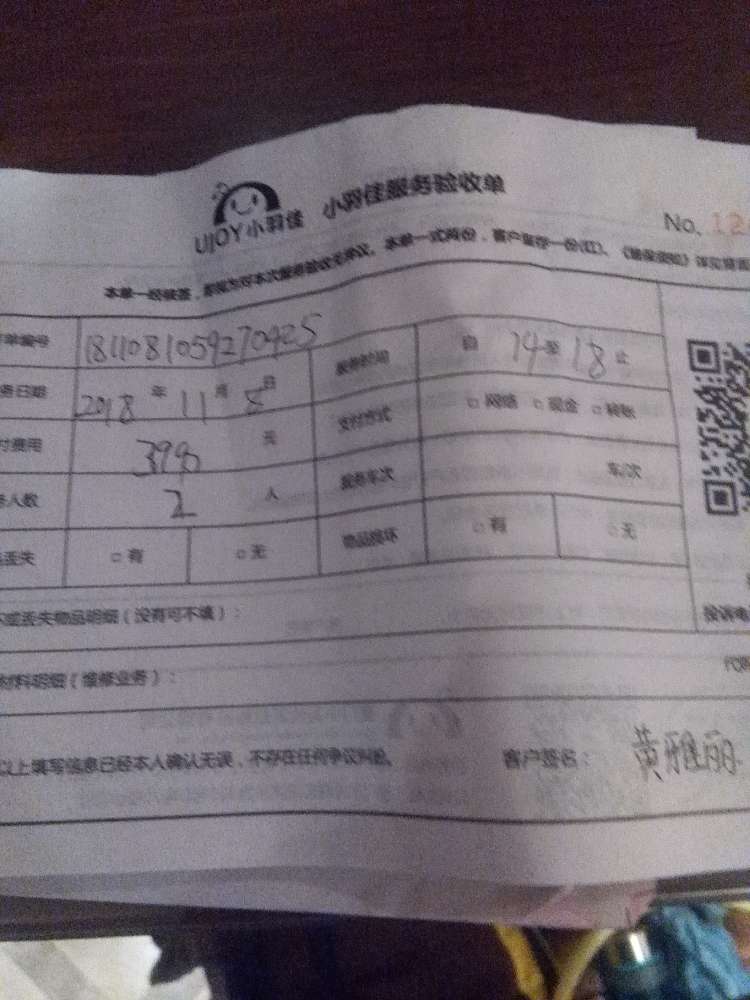 UJOY小羽佳 小羽佳服务验收单
No. 12
本单一经签, 本单一式两份，客户留存一份(红)。
单编号 1811081059270425 服务时间 自 14 至 18 止
务日期 2018 年 11 月 8 日 支付方式 □ 网络 □ 现金 □ 转账
付费用 398 元
人数 2 人 服务车次 车/次
丢失 □ 有 □ 无 物品损坏 □ 有 □ 无
坏或丢失物品明细（没有可不填）： 投诉电
材料明细（维修业务）：
以上填写信息已经本人确认无误，不存在任何争议纠纷。 客户签名： 黄雅丽